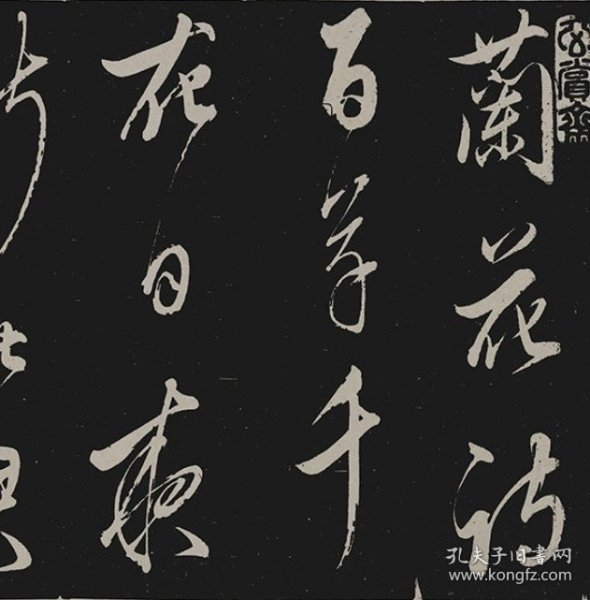 蘭花詩
百草千
花日夜
孔夫子旧书网
www.kongfz.com